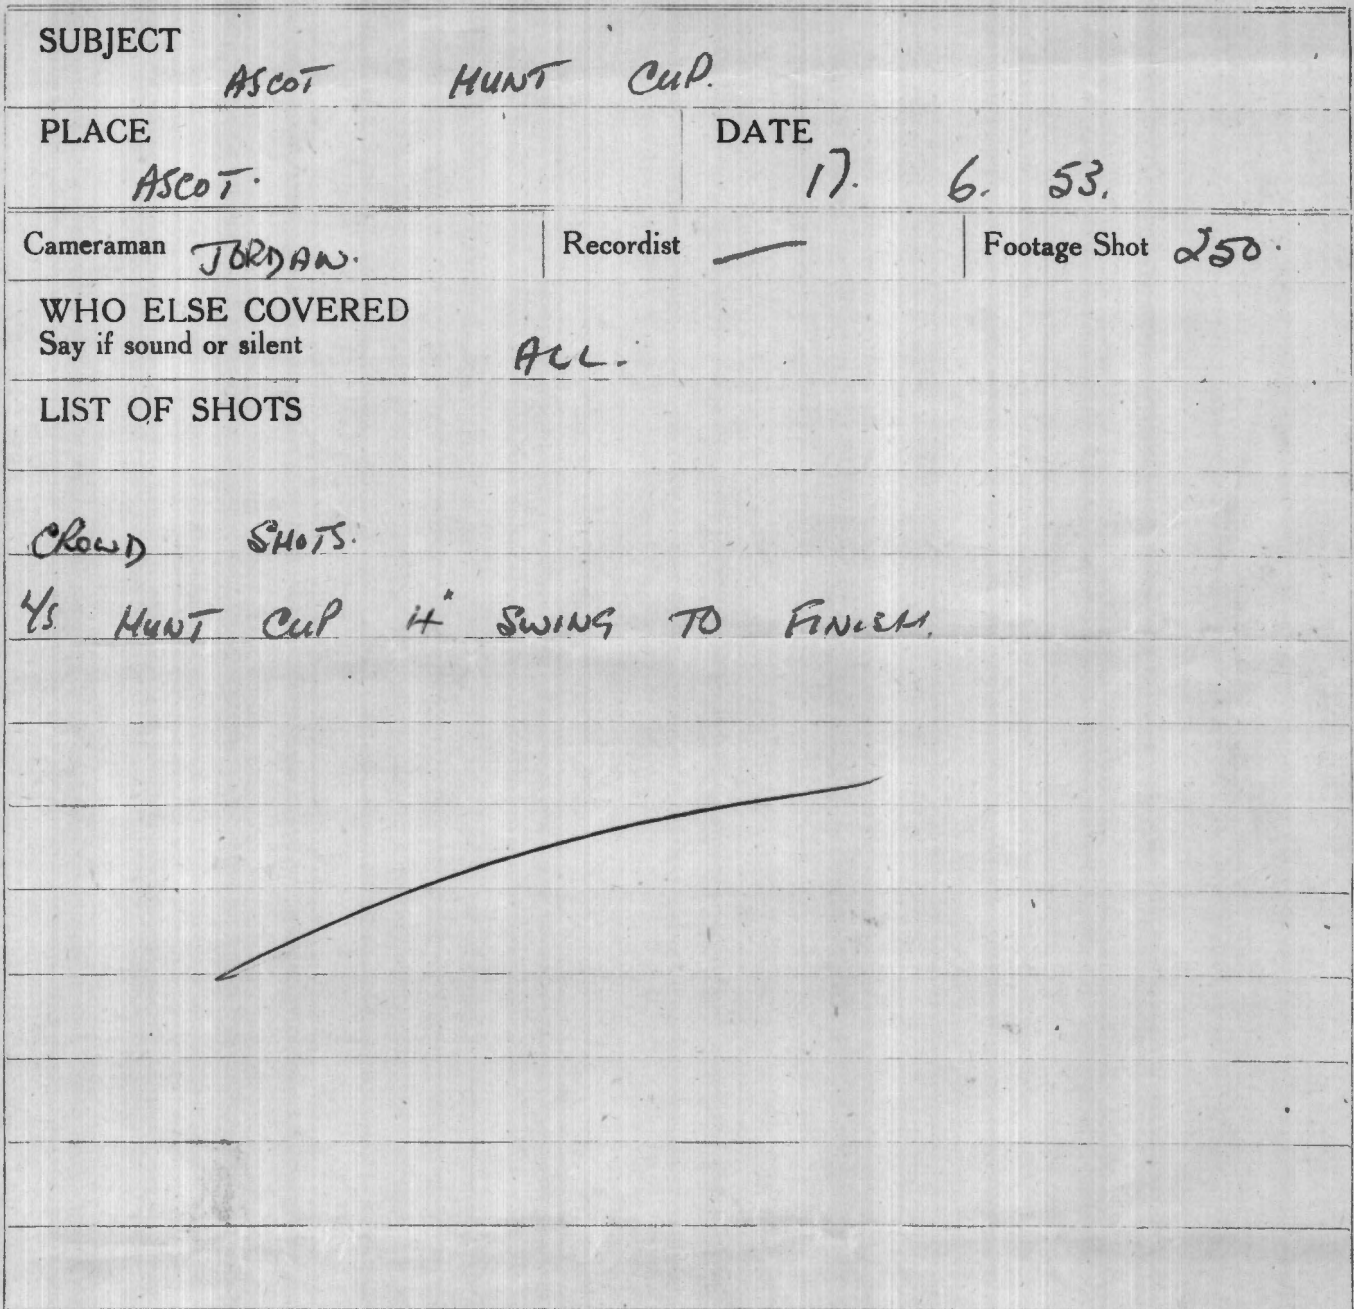 SUBJECT
ASCOT HUNT CUP.
PLACE
ASCOT.
DATE
17. 6. 53.
Cameraman JORDAN.
Recordist —
Footage Shot 250.
WHO ELSE COVERED
Say if sound or silent
ALL.
LIST OF SHOTS
CROWD SHOTS.
L/S. HUNT CUP 4" SWING TO FINISH.